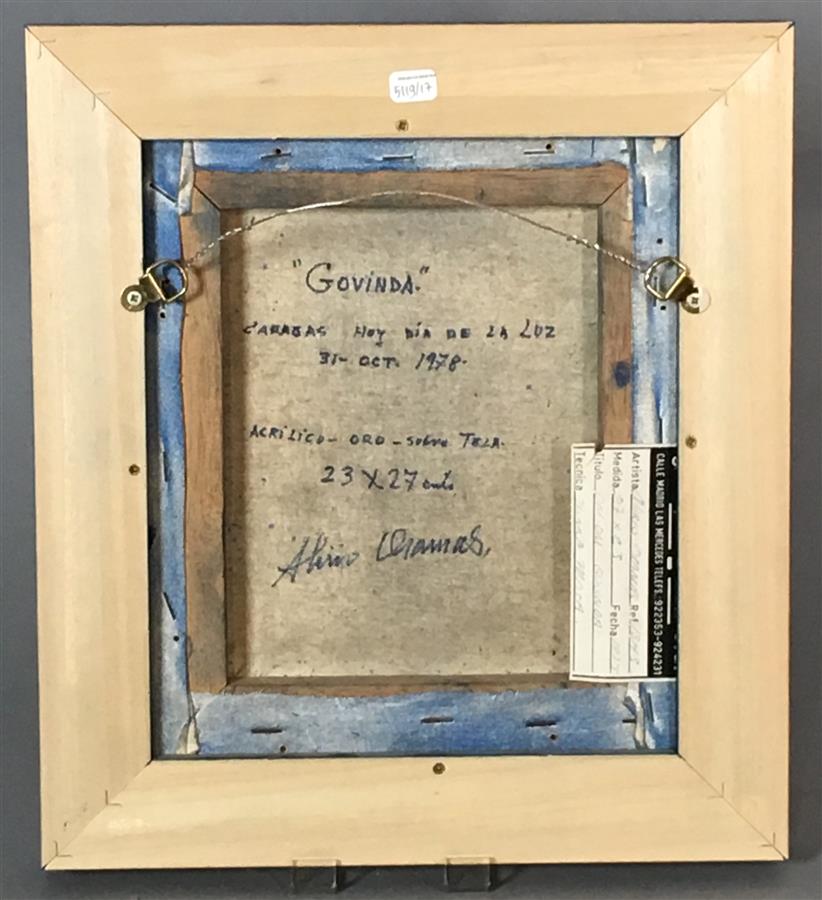 5119/17
"GOVINDA."
CARACAS HOY DÍA DE LA LUZ
31- OCT. 1978.
ACRÍLICO - ORO - SOBRE TELA.
23 X 27 cmts.
Alirio Oramas.
CALLE MADRID LAS MERCEDES TELEFS.:922353-924231
Artista Ref.
Medida Fecha
Título
Tecnica